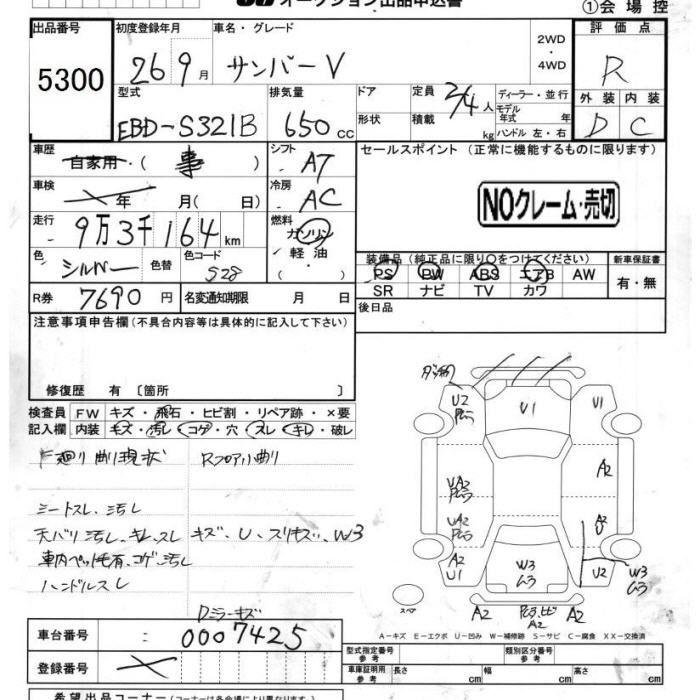 オークション出品申込書
①会場控
出品番号 初度登録年月 車名・グレード 2WD・4WD 評価点
5300 26年9月 サンバーV R
型式 排気量 ドア 定員 2/4人 ディーラー・並行 外装 内装
EBD-S321B 650cc 形状 積載 kg モデル年式 年 ハンドル 左・右 D C
車歴 自家用・(事) シフト AT セールスポイント (正常に機能するものに限ります)
車検 年 月(日) 冷房 AC NOクレーム・売切
走行 9万3千164km 燃料 ガソリン・軽油・( )
色 シルバー 色替 色コード S28
装備品(純正品に限り○をつけてください) 新車保証書
PS PW ABS エアB AW 有・無
SR ナビ TV カワ
R券 7690円 名変通知期限 月 日 後日品
注意事項申告欄(不具合内容等は具体的に記入して下さい)
修復歴 有〔箇所 〕
検査員記入欄 FW キズ・飛石・ヒビ割・リペア跡・×要
内装 キズ・汚レ・コゲ・穴・スレ・キレ・破レ
F廻り曲り現状 Rフロア小曲り
シートスレ、汚レ
天バリ汚レ、キレ、スレ キズ、U、スリキズ、W3
車内ペット毛有、コゲ、汚レ
ハンドルスレ
Dミラーキズ
U2 U1 U1
A2
UA2
UA2 A2
A2 U1 W3 U2 W3
スペア A2 A2 A2
A-キズ E-エクボ U-凹み W-補修跡 S-サビ C-腐食 XX-交換済
車台番号 : 0007425
登録番号
型式指定番号 参考 類別区分番号 参考
車庫証明用 参考 長さ cm 幅 cm 高さ cm
希望出品コーナー(コーナーは各会場により異なります)